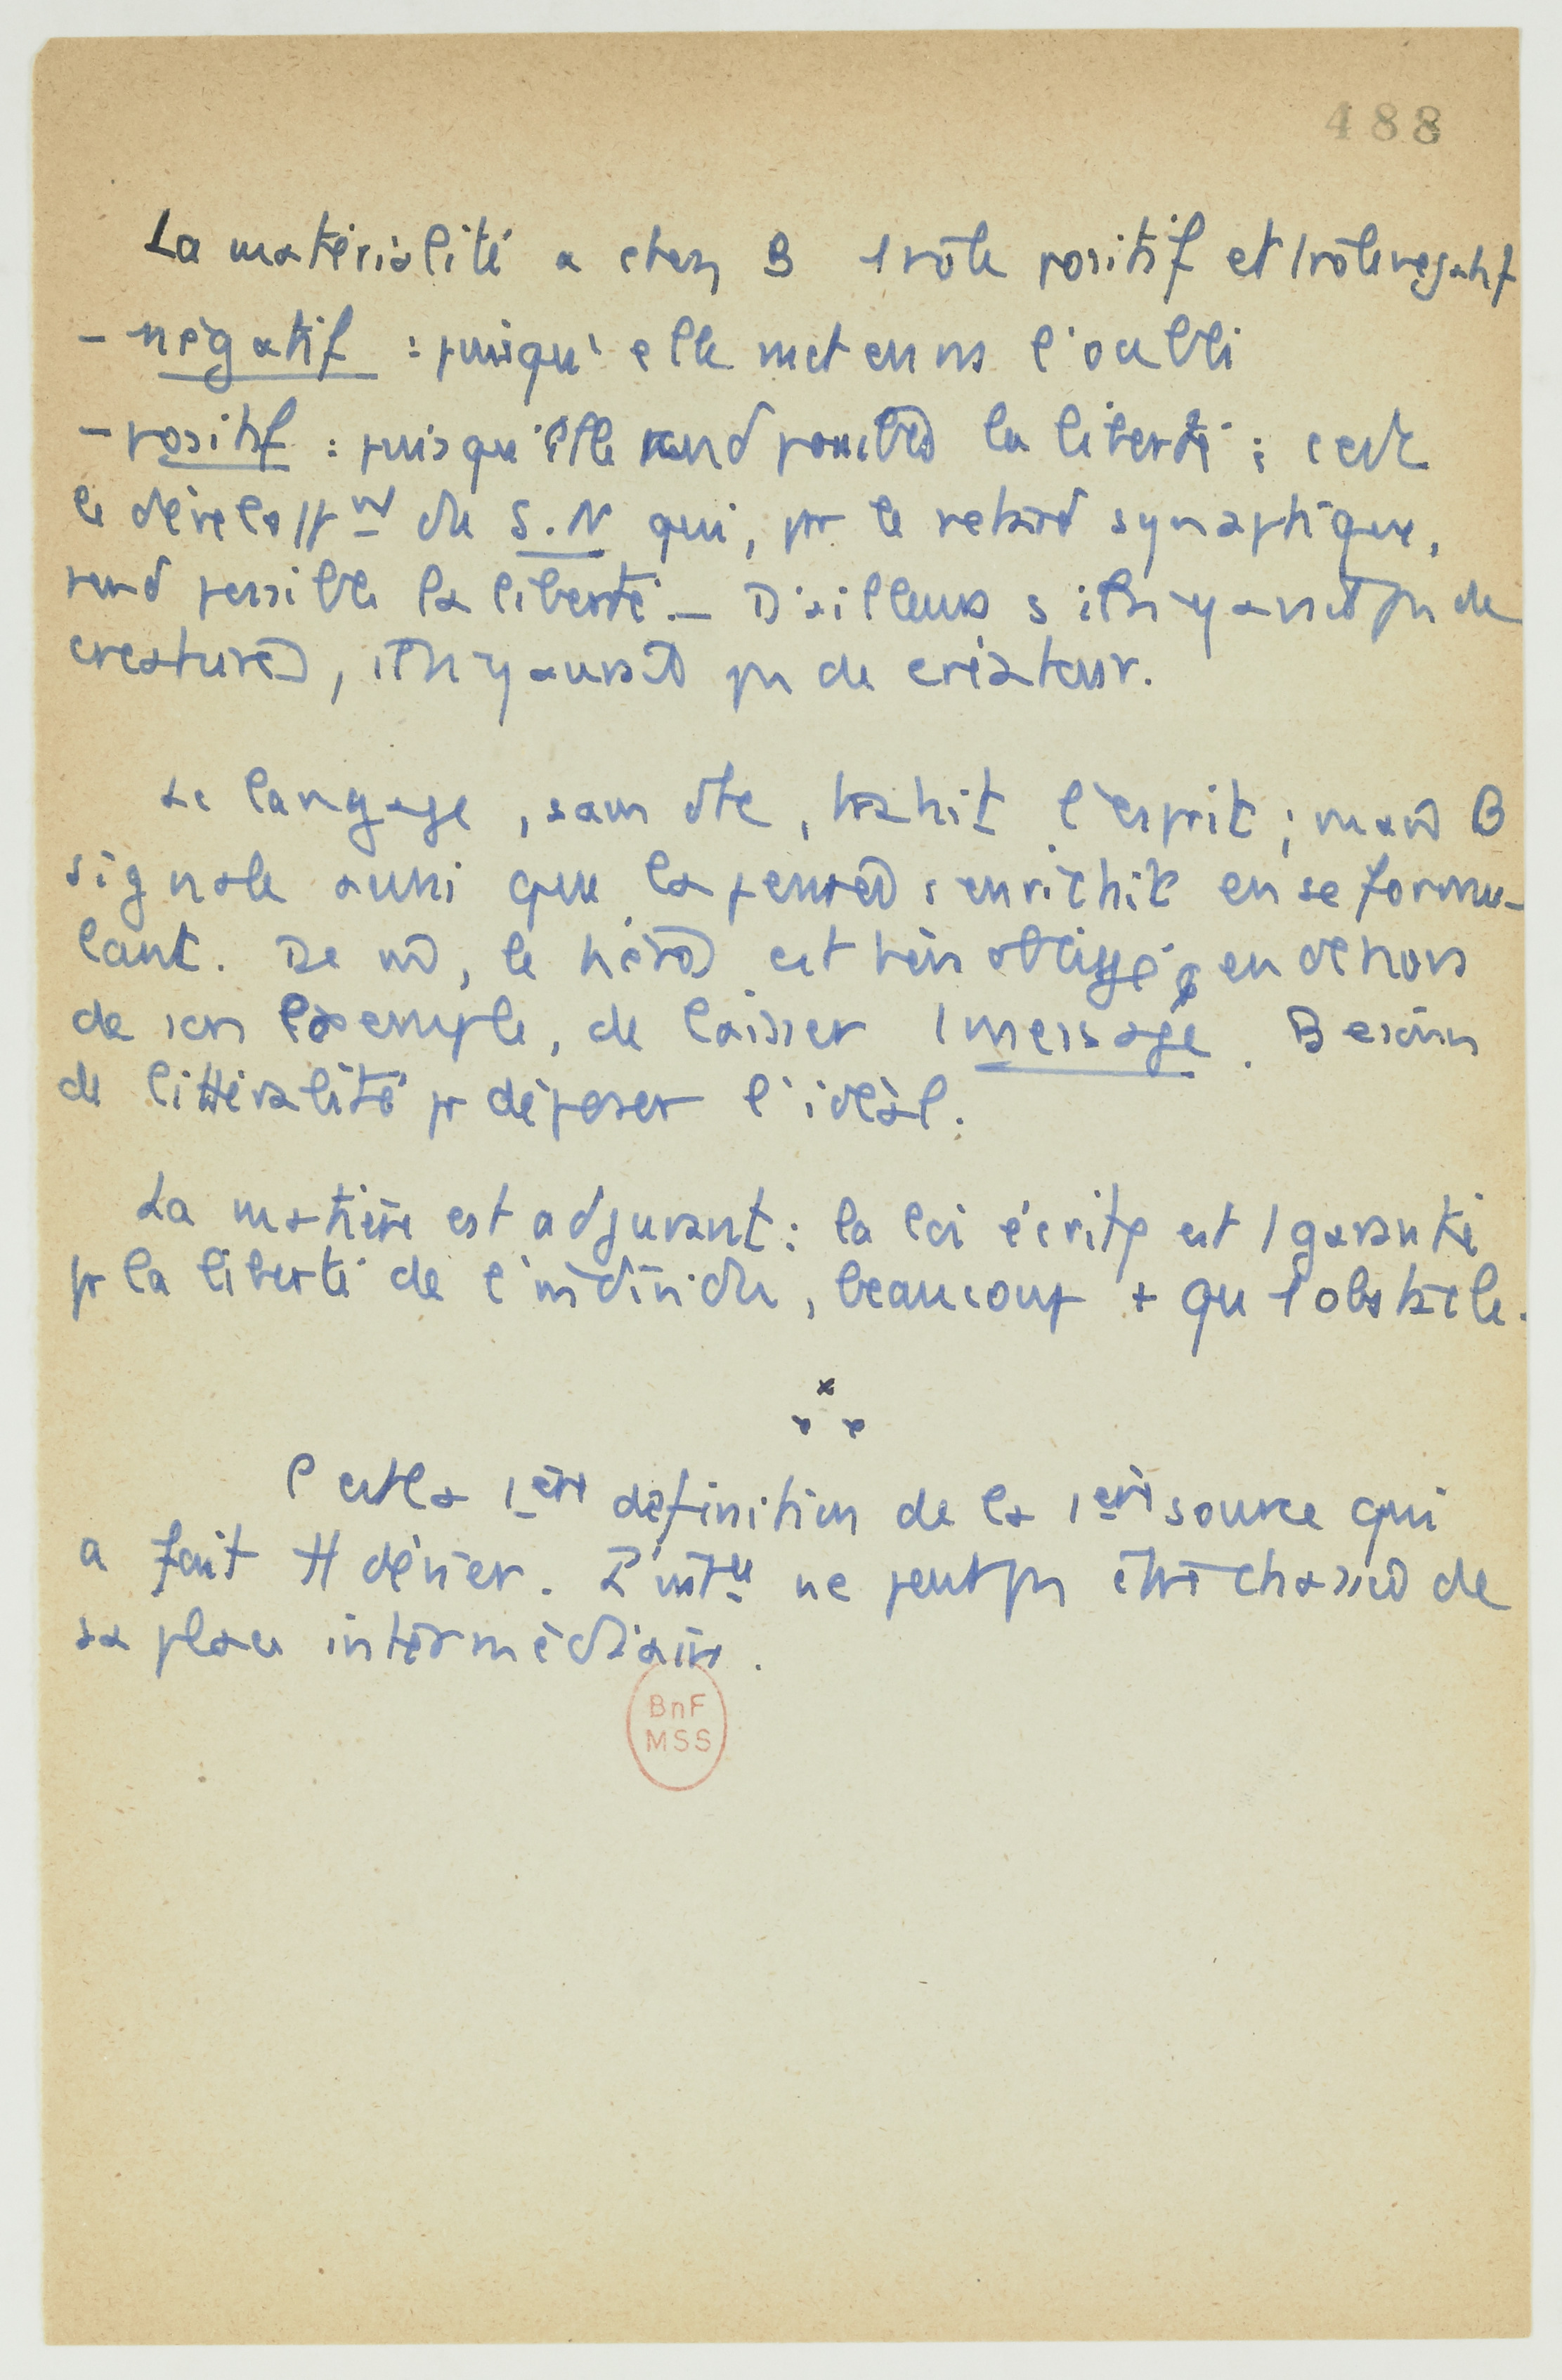 488
La matérialité a chez B 1 rôle positif et 1 rôle négatif
- négatif : puisqu'elle met en ns l'oubli
- positif : puisqu'elle rend possible la liberté ; c'est
le développnt du S.N qui, par le retard synaptique,
rend possible la liberté. — D'ailleurs s'il n'y avait pas de
créature, il n'y aurait pas de créateur.
Le langage, sans dte, trahit l'esprit ; mais B
signale aussi que la pensée s'enrichit en se formu-
lant. De m, le héros est bien obligé, en dehors
de son exemple, de laisser 1 message. Besoin
de littéralité pr déposer l'idéal.
La matière est adjuvant : la loi écrite est 1 garantie
pr la liberté de l'individu, beaucoup + qu'1 obstacle.
C'est la 1ère définition de la 1ère source qui
a fait tt dévier. L' ne peut pas être chassé de
sa place intermédiaire.
BnF
MSS